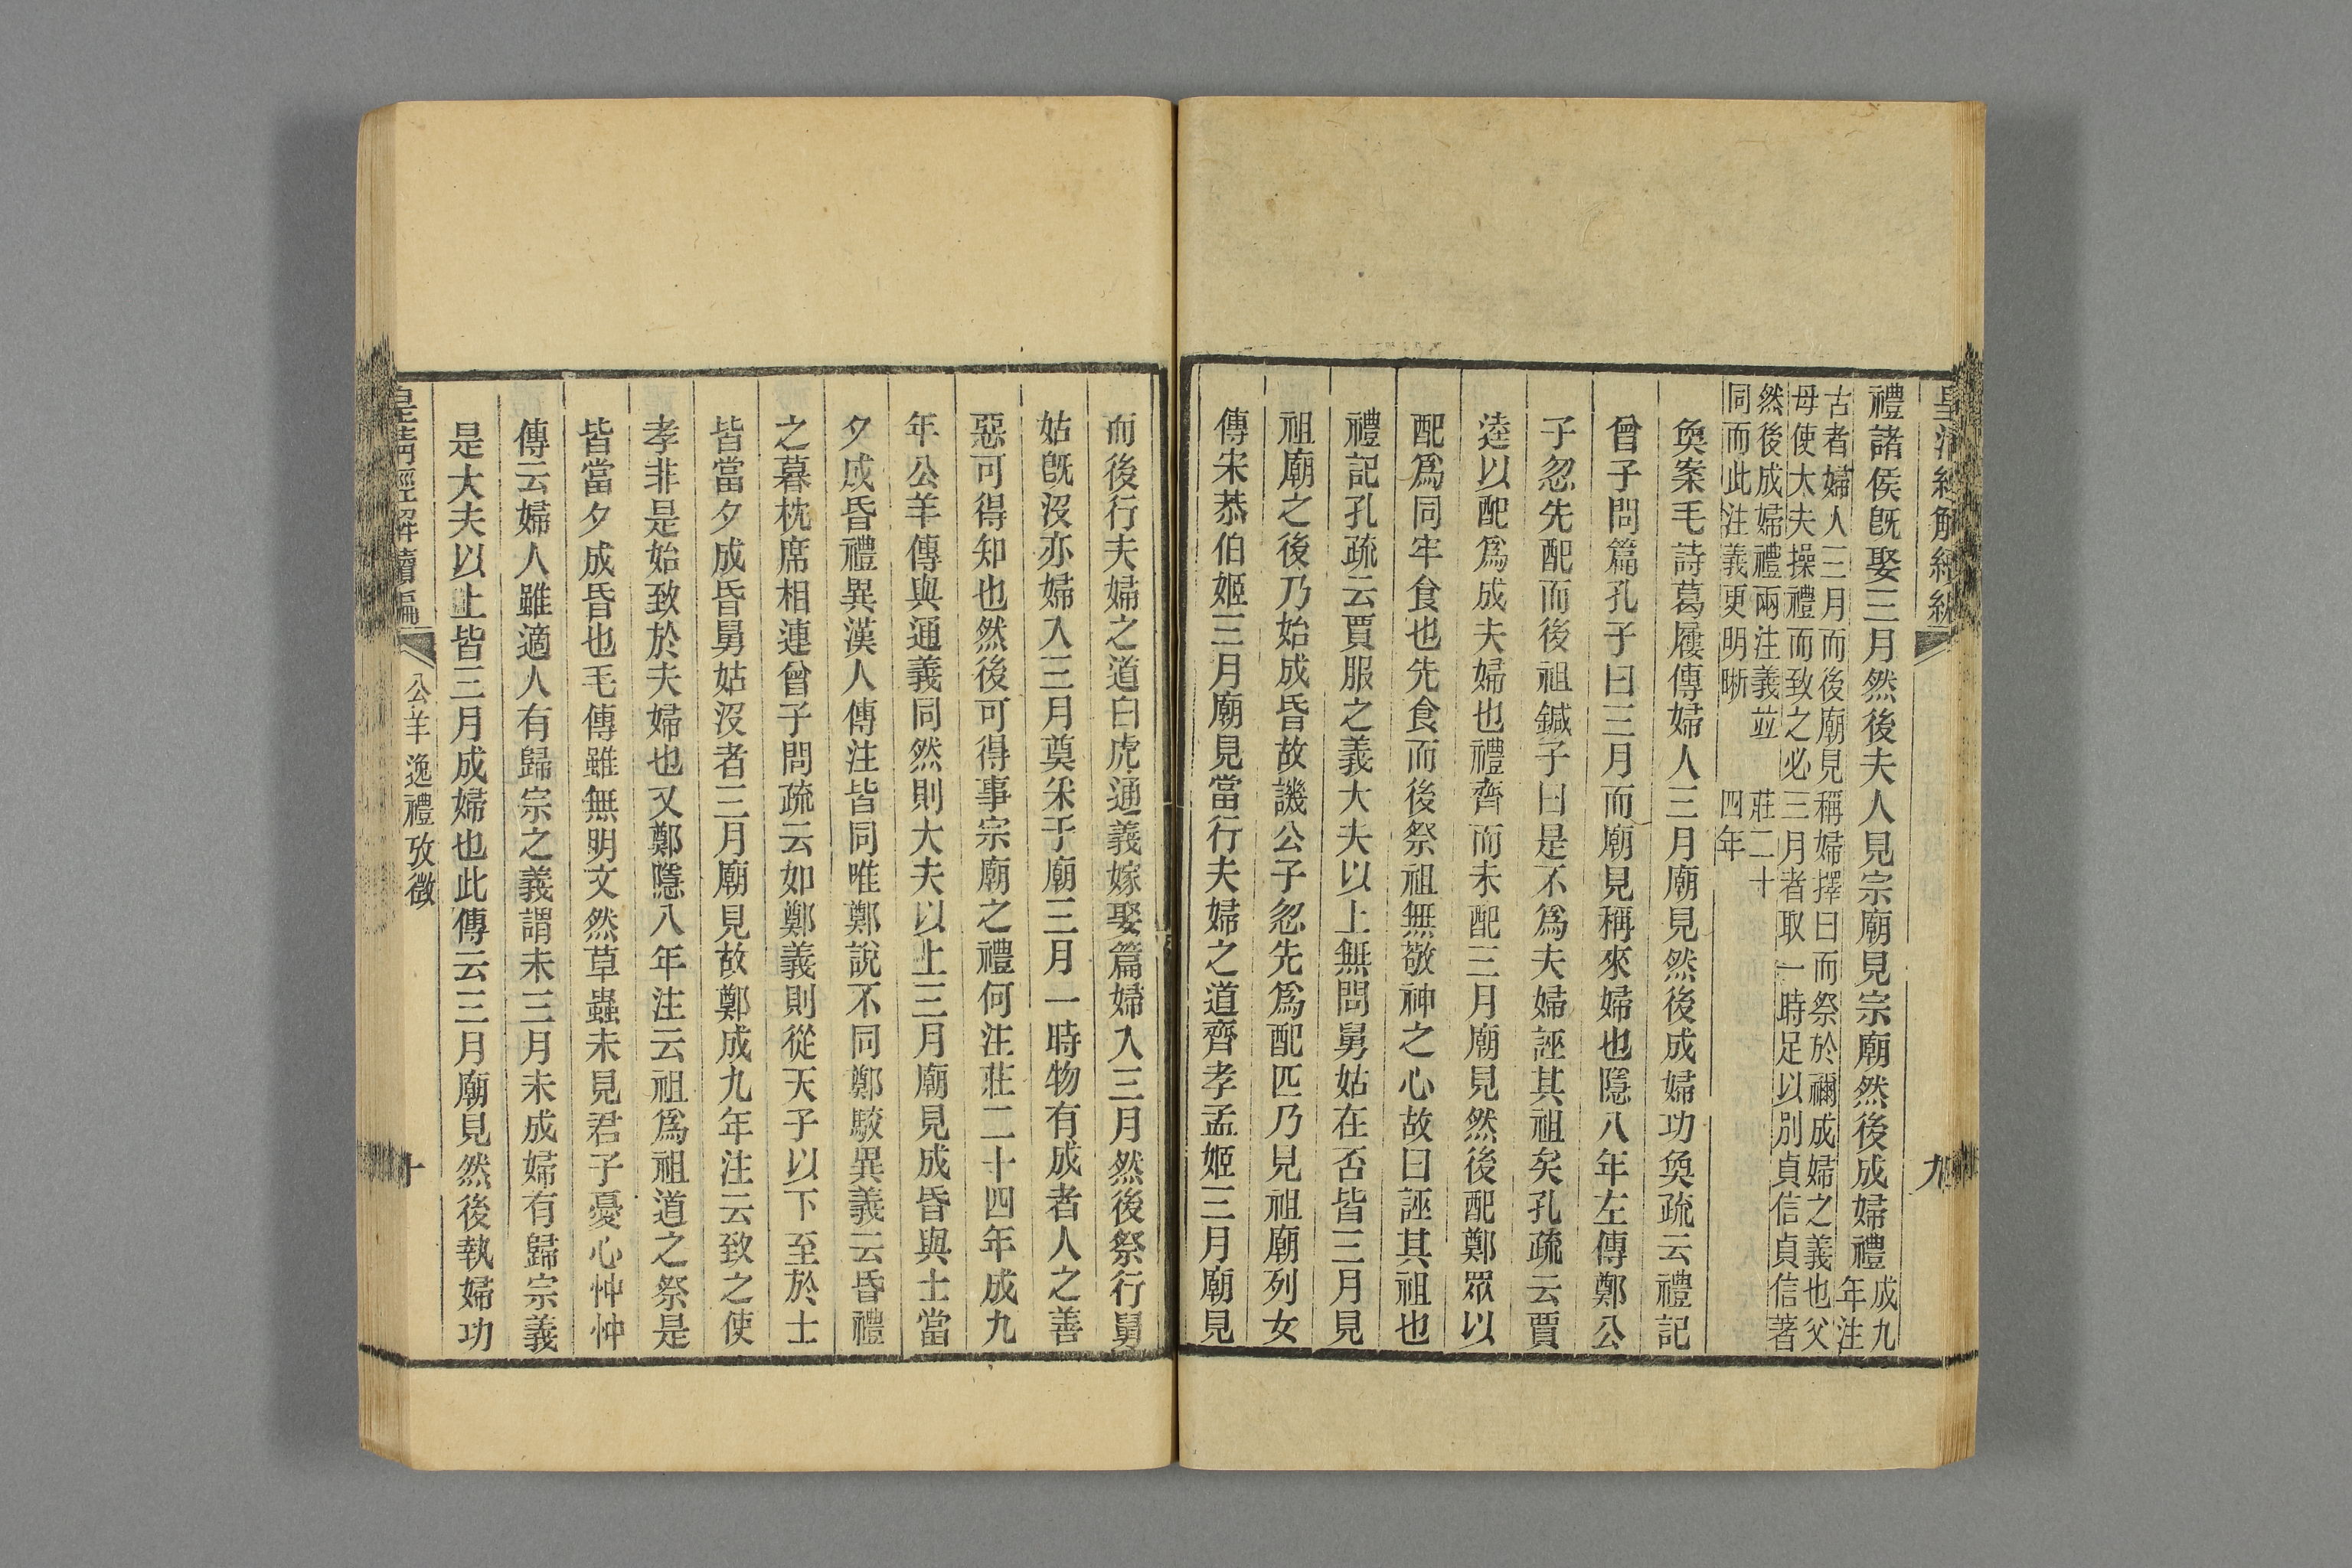 皇清經解續編
九
禮諸侯旣娶三月然後夫人見宗廟見宗廟然後成婦禮成九
年注
古者婦人三月而後廟見稱婦擇日而祭於禰成婦之義也父
母使大夫操禮而致之必三月者取一時足以別貞信貞信著
然後成婦禮兩注義竝莊二十
同而此注義更明晰四年
奐案毛詩葛屨傳婦人三月廟見然後成婦功奐疏云禮記
曾子問篇孔子曰三月而廟見稱來婦也隱八年左傳鄭公
子忽先配而後祖鍼子曰是不爲夫婦誣其祖矣孔疏云賈
逵以配爲成夫婦也禮齊而未配三月廟見然後配鄭眾以
配爲同牢食也先食而後祭祖無敬神之心故曰誣其祖也
禮記孔疏云賈服之義大夫以上無問舅姑在否皆三月見
祖廟之後乃始成昏故譏公子忽先爲配匹乃見祖廟列女
傳宋恭伯姬三月廟見當行夫婦之道齊孝孟姬三月廟見
而後行夫婦之道白虎通義嫁娶篇婦入三月然後祭行舅
姑旣沒亦婦入三月奠采于廟三月一時物有成者人之善
惡可得知也然後可得事宗廟之禮何注莊二十四年成九
年公羊傳與通義同然則大夫以上三月廟見成昏與士當
夕成昏禮異漢人傳注皆同唯鄭說不同鄭駮異義云昏禮
之暮枕席相連曾子問疏云如鄭義則從天子以下至於士
皆當夕成昏舅姑沒者三月廟見故鄭成九年注云致之使
孝非是始致於夫婦也又鄭隱八年注云祖爲祖道之祭是
皆當夕成昏也毛傳雖無明文然草蟲未見君子憂心忡忡
傳云婦人雖適人有歸宗之義謂未三月未成婦有歸宗義
是大夫以上皆三月成婦也此傳云三月廟見然後執婦功
皇淸經解續編
公羊逸禮攷徵
十